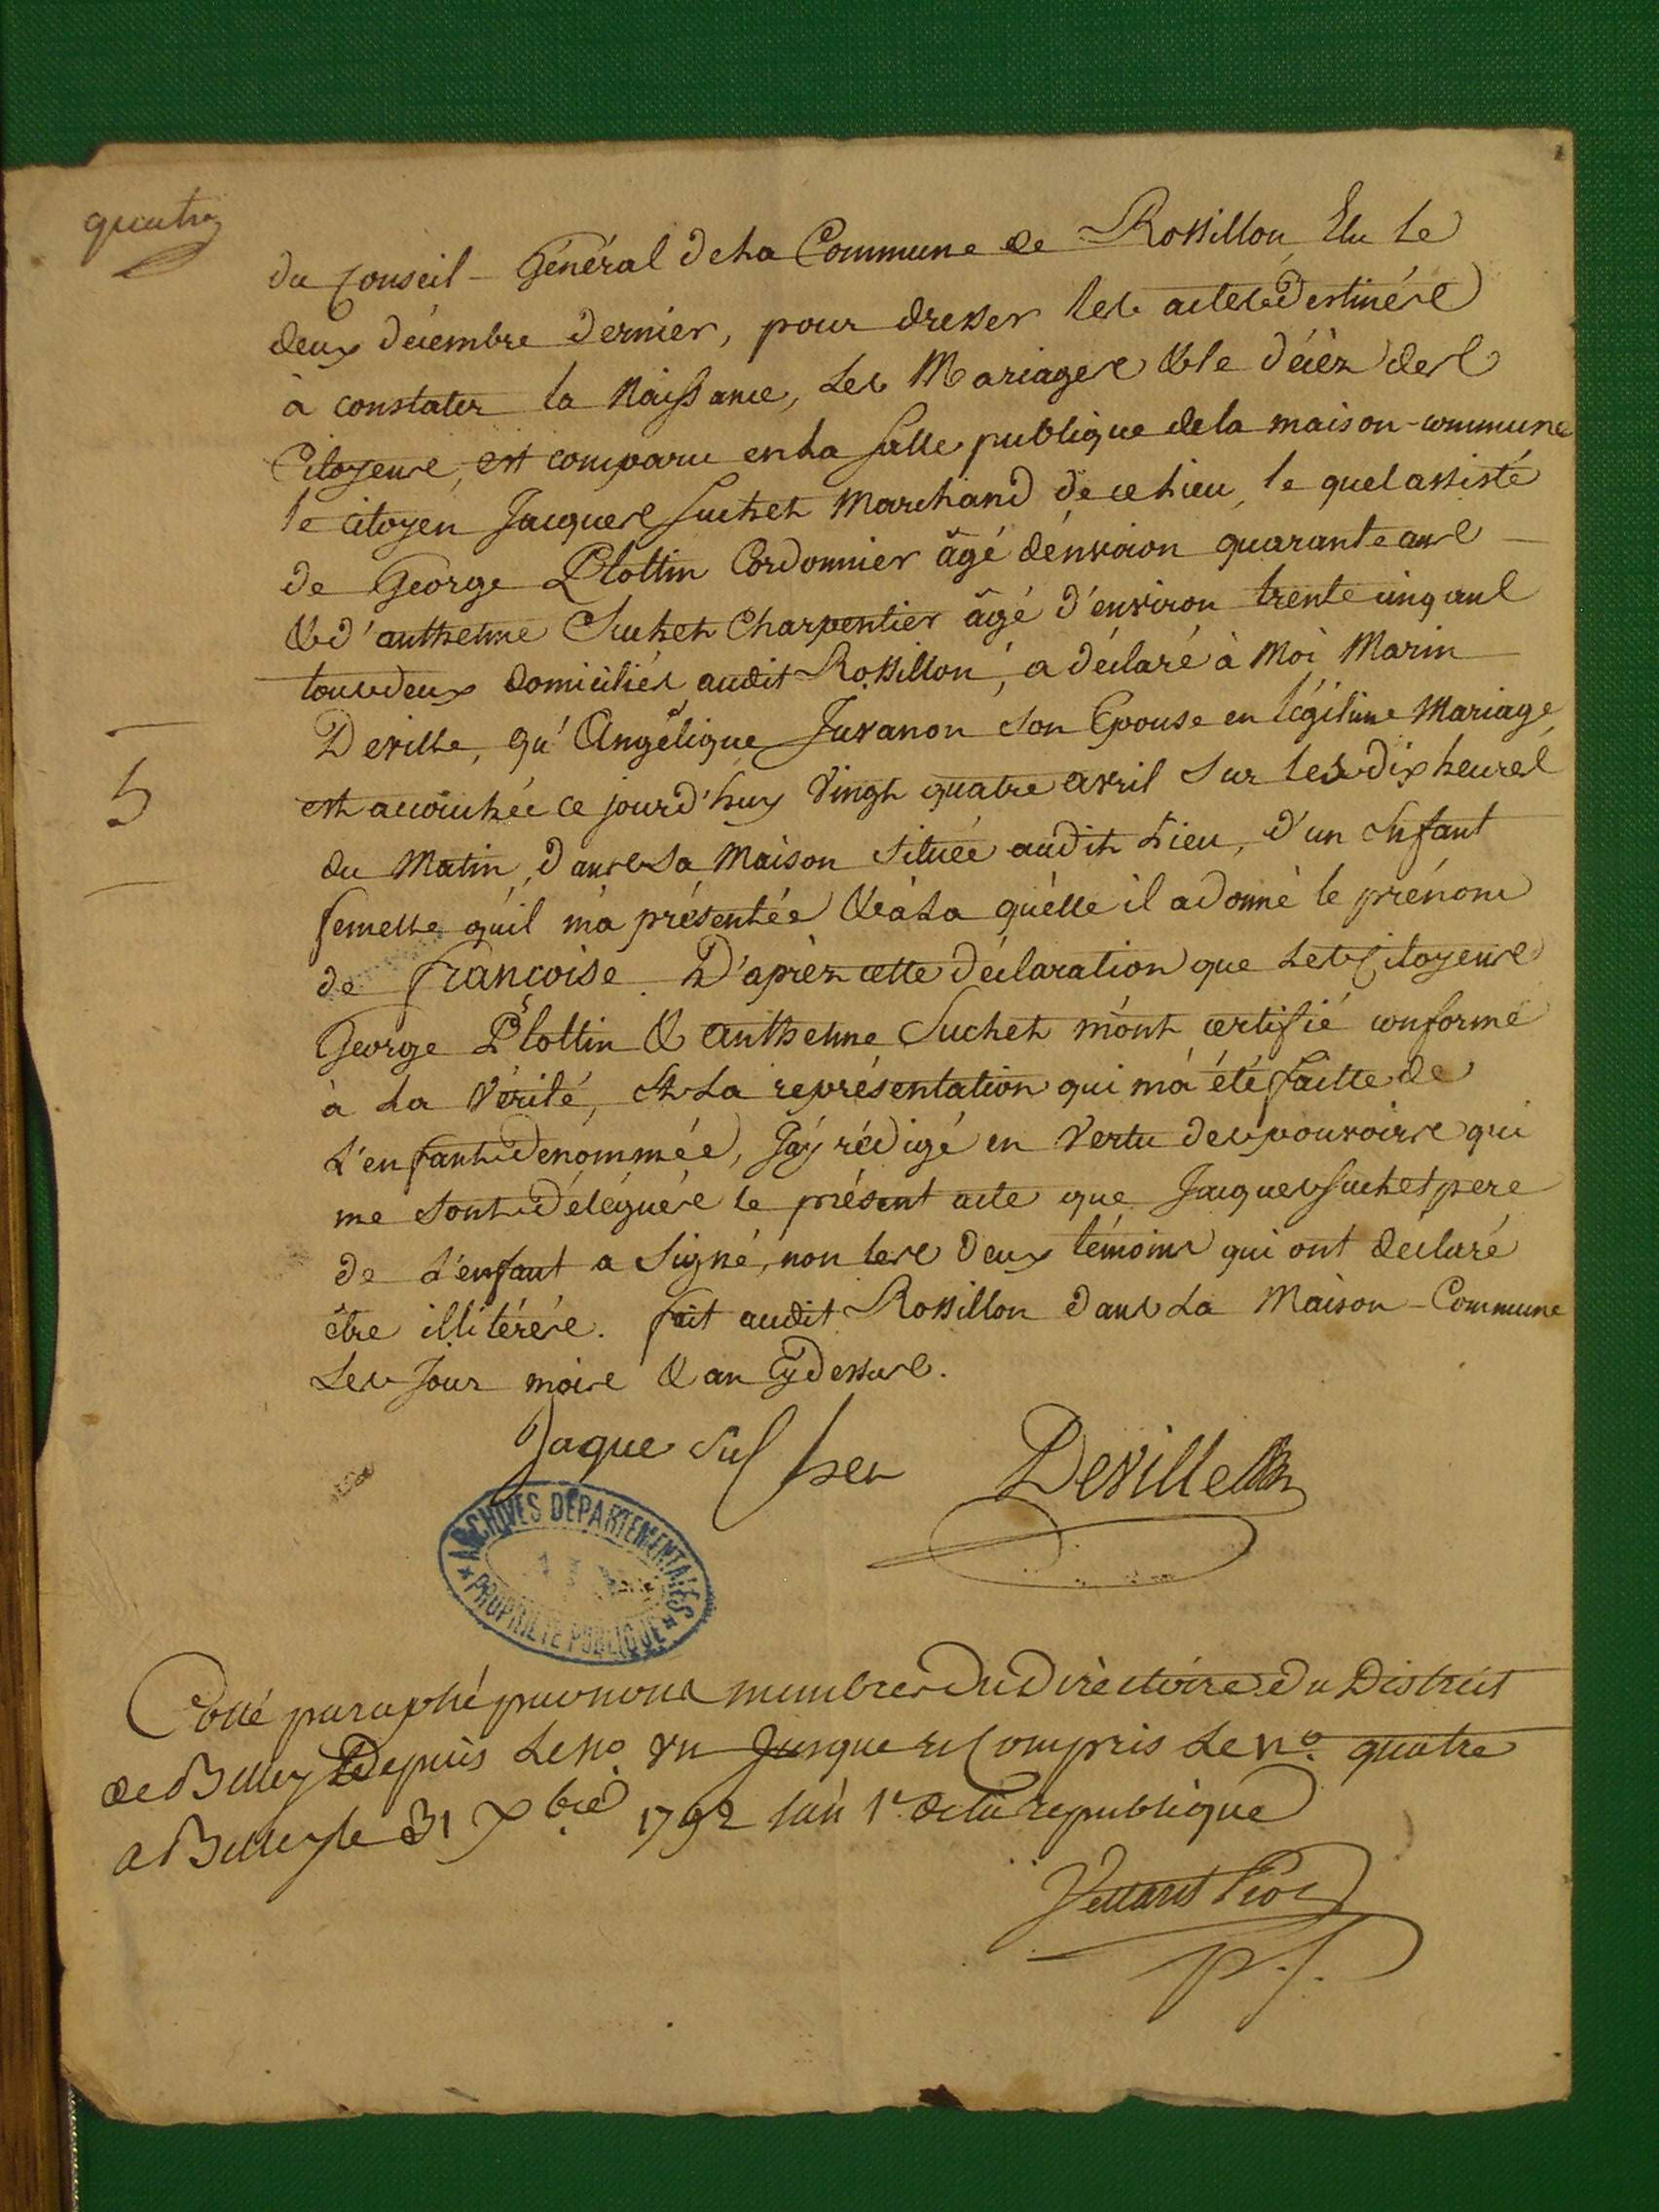 quatre
du Conseil-Général de La Commune de Rossillon, Elu le
deux décembre dernier, pour dresser les actes destinés
à constater la Naissance, les Mariages & le décèz des
Citoyens, est comparu en la salle publique de la maison-commune
le citoyen Jacques Suchet Marchand de ce Lieu, le quel assisté
de George Plottin Cordonnier âgé d'environ quarante ans
& d'anthelme Suchet Charpentier âgé d'environ trente cinq ans
tous deux domiciliés audit Rossillon, a déclaré à Moi Marin
Deville, qu'Angélique Juvanon son Epouse en légitime Mariage,
est accouchée ce jourd'huy Vingt quatre avril sur les dix heures
5
du Matin, dans sa Maison située audit Lieu, d'un Enfant
femelle qu'il m'a présentée & à La quelle il a donné le prénom
de françoise. D'aprèz cette déclaration que les Citoyens
George Plottin & anthelme Suchet m'ont certifié conforme
à La Vérité, & La représentation qui m'a été faitte de
L'enfant denommée, J'ay rédigé en Vertu des pouvoirs qui
me sont délégués le présent acte que Jacques Suchet pere
de L'enfant a Signé, non les deux témoins qui ont déclaré
être illitérés. fait audit Rossillon dans La Maison-Commune
Les Jour mois & an Cy dessus.
Jaque Suchet
Deville
ARCHIVES DEPARTEMENTALES
* PROPRIETE PUBLIQUE *
Cotté paraphé par nous membres du Directoire du District
de Belley Depuis Le no. un Jusque et Compris Le no. quatre
a Belley le 31 Xbre 1792 l'an 1er de la republique
p.s.